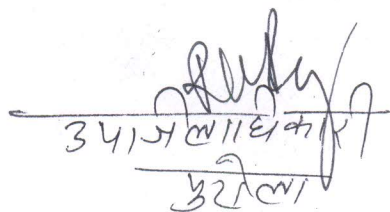 उपाजिलाधिकारी
पुरोला